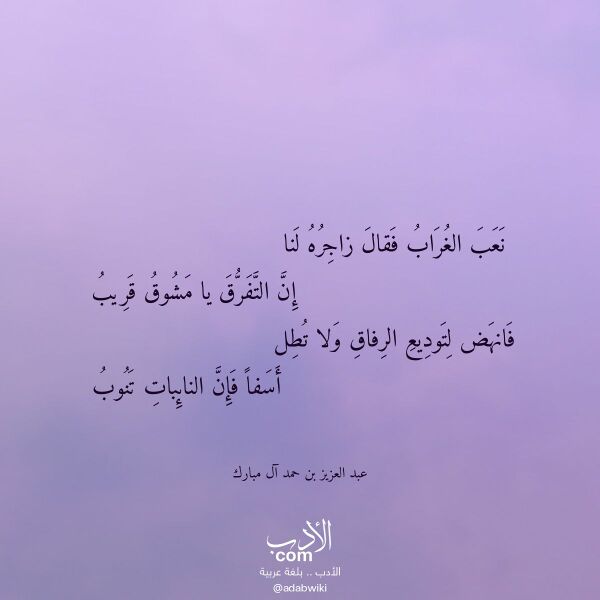 نَعَبَ الغُرَابُ فَقالَ زاجِرُهُ لَنا
إِنَّ التَّفَرُّقَ يا مَشُوقُ قَرِيبُ
فَانهَض لِتَودِيعِ الرِفاقِ وَلا تُطِل
أَسَفاً فَإِنَّ النائِباتِ تَنُوبُ
عبد العزيز بن حمد آل مبارك
الأدب
com
الأدب .. بلغة عربية
@adabwiki